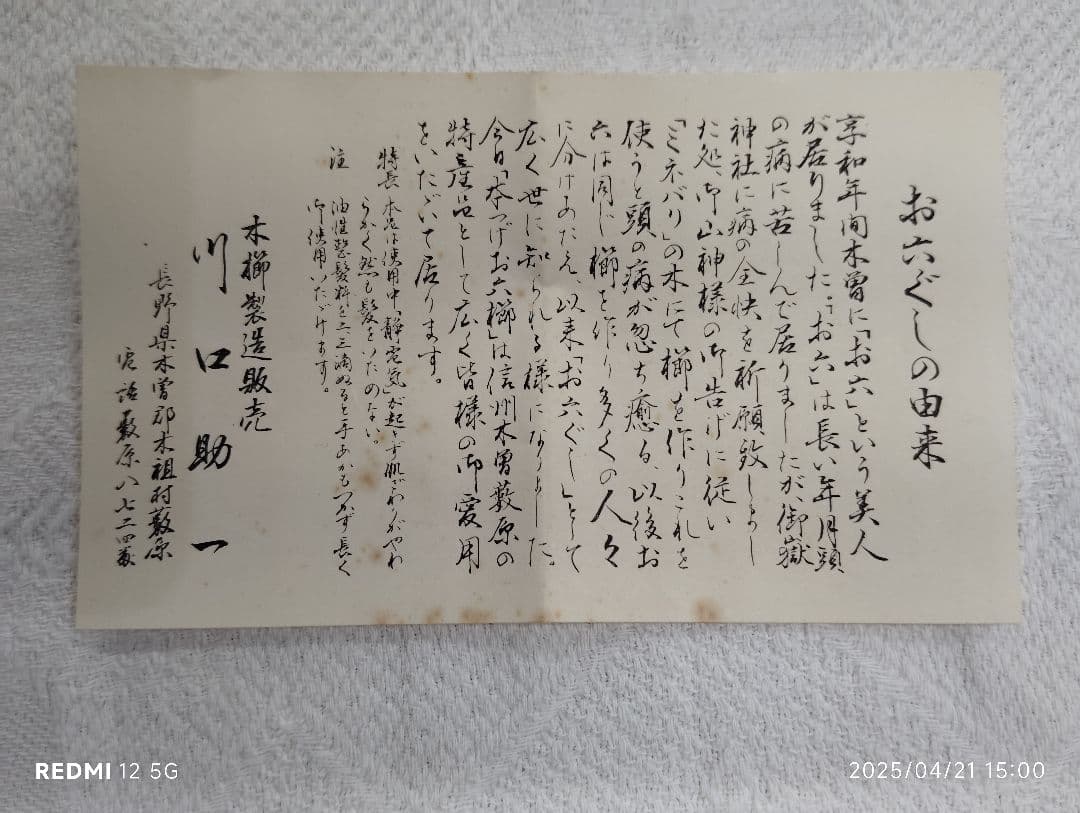 お六ぐしの由来
享和年間木曽に「お六」という美人
が居りました。「お六」は長い年月頭
の病に苦しんで居りましたが、御嶽
神社に病の全快を祈願致しまし
た処、御山神様の御告げに従い
「ミネバリ」の木にて櫛を作りこれを
使うと頭の病が忽ち癒る、以後お
六は同じ櫛を作り多くの人々
に分けあたえ、以来「お六ぐし」として
広く世に知られる様になりました。
今日「本つげお六櫛」は信州木曽薮原の
特産品として広く皆様の御愛用
をいただいて居ります。
特長 本品は使用中「静電気」が起きず肌ざわりがやわ
らかく然も髪をいためない
注 油性整髪料を二三滴ぬると手あかもつかず長く
御使用いただけます。
木櫛製造販売
川口助一
長野県木曽郡木祖村薮原
電話薮原八七二四番
REDMI 12 5G
2025/04/21 15:00